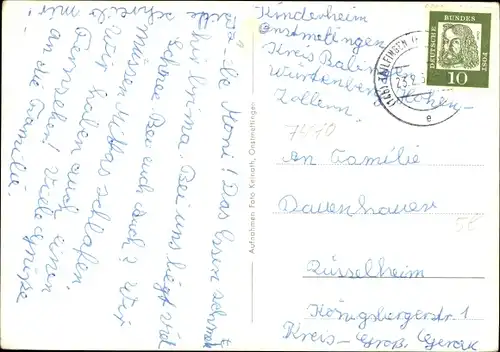 Moni! Das Essen schmekt
hir brima. Bei uns liegt viel
Schnee. Bei euch auch? Wir
müsen Mittas schlafen.
Wir haben auch einen
Fernseher! Viele Grüße
an die Familie.
schreib mir!
Aufnahmen Foto Keinath, Onstmettingen
Kinderheim
Onstmettingen
Kreis
Würtenberg Hohen-
Zollern.
DEUTSCHE BUNDESPOST
10
e
74/10
An Familie
Dauenhauer
Rüsselheim
Königsbergerstr. 1
Kreis-Groß Gerau